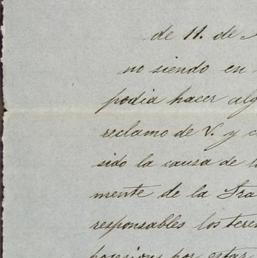 de 11. de
no siendo en
podia hacer alg
reclamo de V. y
sido la causa de
mente de la Sra
responsables los
por estar